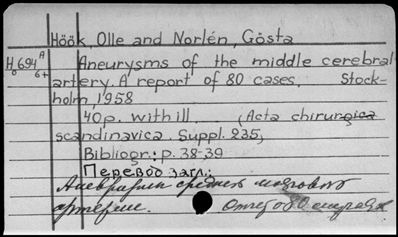 Höök, Olle and Norlén, Gösta
H 694 A
6 6+
Aneurysms of the middle cerebral
artery. A report of 80 cases. Stock-
holm, 1958
40 p. with ill. (Acta chirurgica
scandinavica. Suppl. 235)
Bibliogr.: p. 38-39
Перевод загл.:
Аневризмы средней мозговой
артерии. Отчет о 80 случаях